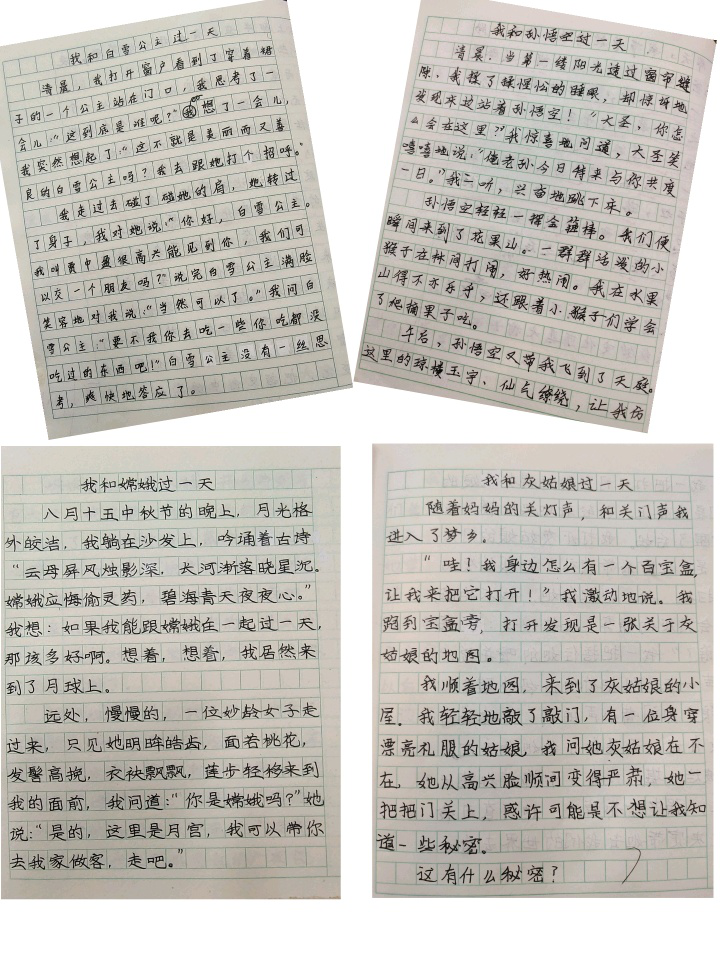 我和白雪公主过一天
清晨，我打开窗户看到了穿着裙
子的一个公主站在门口，我思考了一
会儿：“这到底是谁呢？”我想了一会儿，
我突然想起了：“这不就是美丽而又善
良的白雪公主吗？我去跟她打个招呼。”
我走过去碰了碰她的肩，她转过
了身子，我对她说：“你好，白雪公主。
我叫贾中盈很高兴能见到你，我们可
以交一个朋友吗？”说完白雪公主满脸
笑容地对我说：“当然可以了。”我问白
雪公主：“要不我你去吃一些你吃都没
吃过的东西吧！”白雪公主没有一丝思
考，爽快地答应了。
我和孙悟空过一天
清晨，当第一缕阳光透过窗帘缝
隙，我揉了揉惺忪的睡眼，却惊讶地
发现床边站着孙悟空！“大圣，你怎
么会在这里？”我惊喜地问道，大圣笑
嘻嘻地说：“俺老孙今日特来与你共度
一日。”我一听，兴奋地跳下床。
孙悟空轻轻一挥金箍棒。我们便
瞬间来到了花果山。一群群活泼的小
猴子在林间打闹，好热闹。我在水果
山得不亦乐乎，还跟着小猴子们学会
了爬摘果子吃。
午后，孙悟空又带我飞到了天庭。
这里的琼楼玉宇、仙气缭绕，让我仿
我和嫦娥过一天
八月十五中秋节的晚上，月光格
外皎洁，我躺在沙发上，吟诵着古诗
“云母屏风烛影深，长河渐落晓星沉。
嫦娥应悔偷灵药，碧海青天夜夜心。”
我想：如果我能跟嫦娥在一起过一天，
那该多好啊。想着，想着，我居然来
到了月球上。
远处，慢慢的，一位妙龄女子走
过来，只见她明眸皓齿，面若桃花，
发髻高挽，衣袂飘飘，莲步轻移来到
我的面前，我问道：“你是嫦娥吗？”她
说：“是的，这里是月宫，我可以带你
去我家做客，走吧。”
我和灰姑娘过一天
随着妈妈的关灯声，和关门声我
进入了梦乡。
“哇！我身边怎么有一个百宝盒，
让我来把它打开！”我激动地说。我
跑到宝盒旁，打开发现是一张关于灰
姑娘的地图。
我顺着地图，来到了灰姑娘的小
屋，我轻轻地敲了敲门，有一位身穿
漂亮礼服的姑娘，我问她灰姑娘在不
在，她从高兴脸顺间变得严肃，她一
把把门关上，感许可能是不想让我知
道一些秘密。
这有什么秘密？